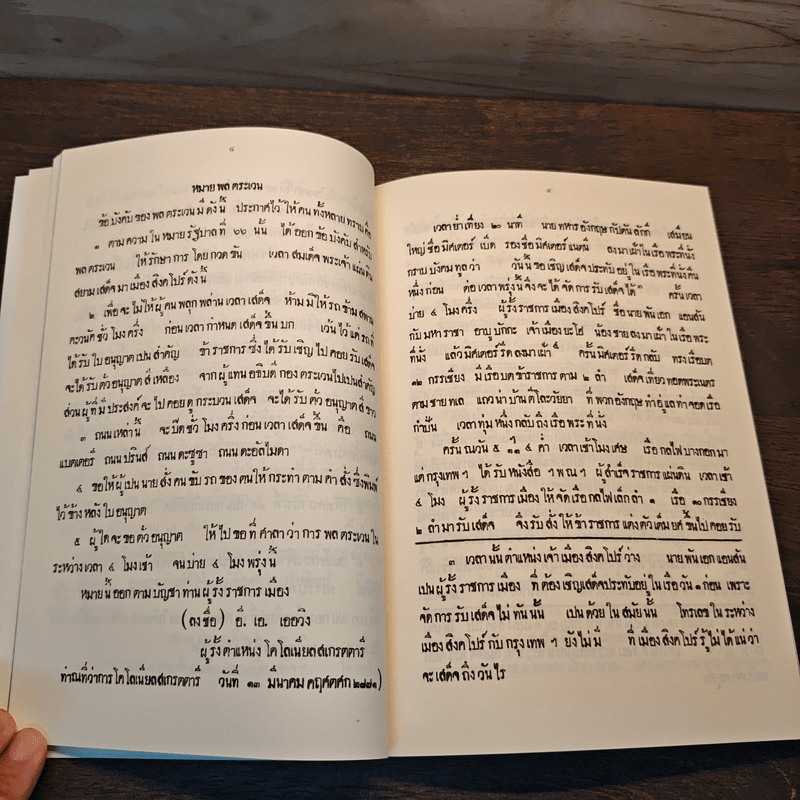 ๔
หมายพลตระเวน
ข้อบังคับของพลตระเวนมีดังนี้ ประกาศไว้ให้คนทั้งหลายทราบคือ
๑ ตามความในหมายรัฐบาลที่ ๖๖ นั้น ได้ออกข้อบังคับสำหรับ
พลตระเวน ให้รักษาการโดยกวดขัน เวลาสมเด็จพระเจ้าแผ่นดิน
สยามเสด็จมาเมืองสิงคโปร์ดังนี้
๒ เพื่อจะไม่ให้ผู้คนพลุกพล่านเวลาเสด็จ ห้ามมิให้รถข้ามสพาน
คะวนัดชั่วโมงครึ่ง ก่อนเวลากำหนดเสด็จขึ้นบก เว้นไว้แต่รถที่
ได้รับใบอนุญาตเปนสำคัญ ข้าราชการซึ่งได้รับเชิญไปคอยรับเสด็จ
จะได้รับตั๋วอนุญาตสีเหลือง จากผู้แทนอธิบดีกองตระเวนไปเปนสำคัญ
ส่วนผู้ที่มีประสงค์จะไปคอยดูกระบวนเสด็จ จะได้รับตั๋วอนุญาตสีขาว
๓ ถนนเหล่านี้ จะปิดชั่วโมงครึ่งก่อนเวลาเสด็จขึ้น คือ ถนน
แบตเตอรี่ ถนนปรินส์ ถนนคะซูซา ถนนคะอัลไมดา
๔ ขอให้ผู้เปนนายสั่งคนขับรถของตนให้กระทำตามคำสั่งซึ่งพิมพ์
ไว้ข้างหลังใบอนุญาต
๕ ผู้ใดจะขอตั๋วอนุญาต ให้ไปขอที่ศาลาว่าการพลตระเวนใน
ระหว่างเวลา ๔ โมงเช้า จนบ่าย ๔ โมงพรุ่งนี้
หมายนี้ออกตามบัญชาท่านผู้รั้งราชการเมือง
(ลงชื่อ) อี. เอ. เออวิง
ผู้รั้งตำแหน่งโคโลเนียลสเกรตตารี
ทำณที่ว่าการโคโลเนียลสเกรตตารี วันที่ ๑๓ มีนาคม คฤศตศก ๒๘๘๑)
๕
เวลาย่ำเที่ยง ๒๐ นาที นายทหารอังกฤษกัปตันลักกี เสมียน
ใหญ่ชื่อมิศเตอร์เบิด รองชื่อมิศเตอร์แนดนี ลงมาเฝ้าในเรือพระที่นั่ง
กราบบังคมทูลว่า วันนี้ขอเชิญเสด็จประทับอยู่ในเรือพระที่นั่งคืน
หนึ่งก่อน ต่อเวลาพรุ่งนี้จึงจะได้จัดการรับเสด็จได้ ๓ ครั้นเวลา
บ่าย ๔ โมงครึ่ง ผู้รั้งราชการเมืองสิงคโปร์ ชื่อนายพันเอก แอนสัน
กับมหาราชา อาบูบักกะ เจ้าเมืองยะโฮ่ น้องชายลงมาเฝ้าในเรือพระ
ที่นั่ง แล้วมิศเตอร์รีดลงมาเฝ้า ครั้นมิศเตอร์รีดกลับ ทรงเรือบต
๑๒ กรรเชียง มีเรือบตข้าราชการตาม ๒ ลำ เสด็จเที่ยวทอดพระเนตร
ตามชายทเล แถวน่าบ้านตีโละวัยยา ที่พวกอังกฤษทำอู่แลท่าจอดเรือ
กำปั่น เวลาทุ่มหนึ่งกลับถึงเรือพระที่นั่ง
ครั้นณวัน ๕ ๑๑ ๔ ค่ำ เวลาเช้าโมงเศษ เรือกลไฟบางกอกมา
แต่กรุงเทพ ฯ ได้รับหนังสือ ฯ พณ ฯ ผู้สำเร็จราชการแผ่นดิน เวลาเช้า
๔ โมง ผู้รั้งราชการเมืองให้จัดเรือกลไฟเล็กลำ ๑ เรือ ๑๐ กรรเชียง
๒ ลำมารับเสด็จ จึงรับสั่งให้ข้าราชการแต่งตัวเต็มยศขึ้นไปคอยรับ
๓ เวลานั้นตำแหน่งเจ้าเมืองสิงคโปร์ว่าง นายพันเอกแอนสัน
เปนผู้รั้งราชการเมือง ที่ต้องเชิญเสด็จประทับอยู่ในเรือวัน ๑ ก่อน เพราะ
จัดการรับเสด็จไม่ทันนั้น เปนด้วยในสมัยนั้น โทรเลขในระหว่าง
เมืองสิงคโปร์กับกรุงเทพ ฯ ยังไม่มี ที่เมืองสิงคโปร์รู้ไม่ได้แน่ว่า
จะเสด็จถึงวันไร